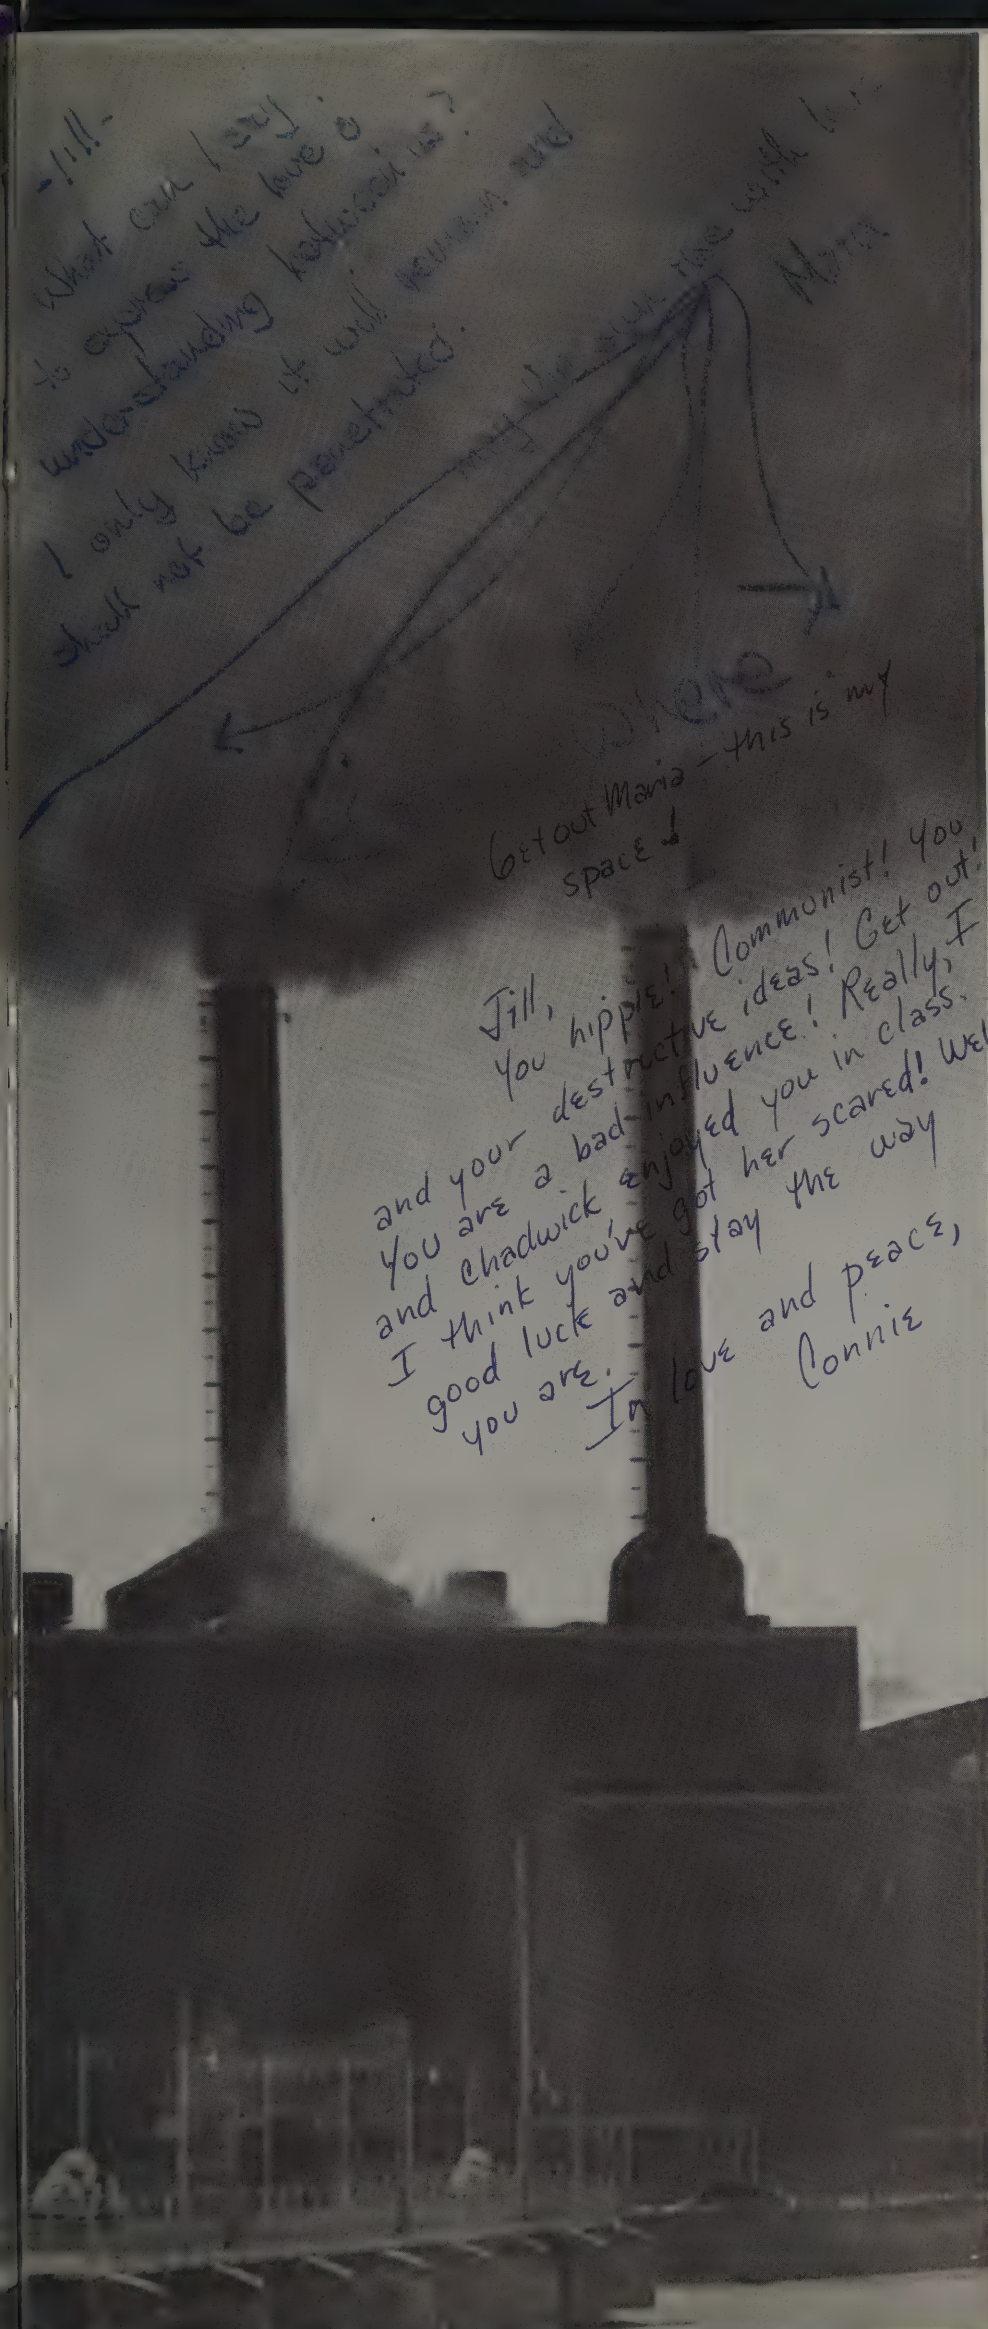 -Jill-
What can I say
to express the love &
understanding between us?
I only know it will remain and
shall not be penetrated.
may the sun rise with
Maria
where
Get out Maria - this is my
space!
Jill,
You hippie! Communist! You
and your destructive ideas! Get out!
You are a bad influence! Really, I
and Chadwick enjoyed you in class.
I think you've got her scared! Well
good luck and stay the way
you are.
In love and peace,
Connie